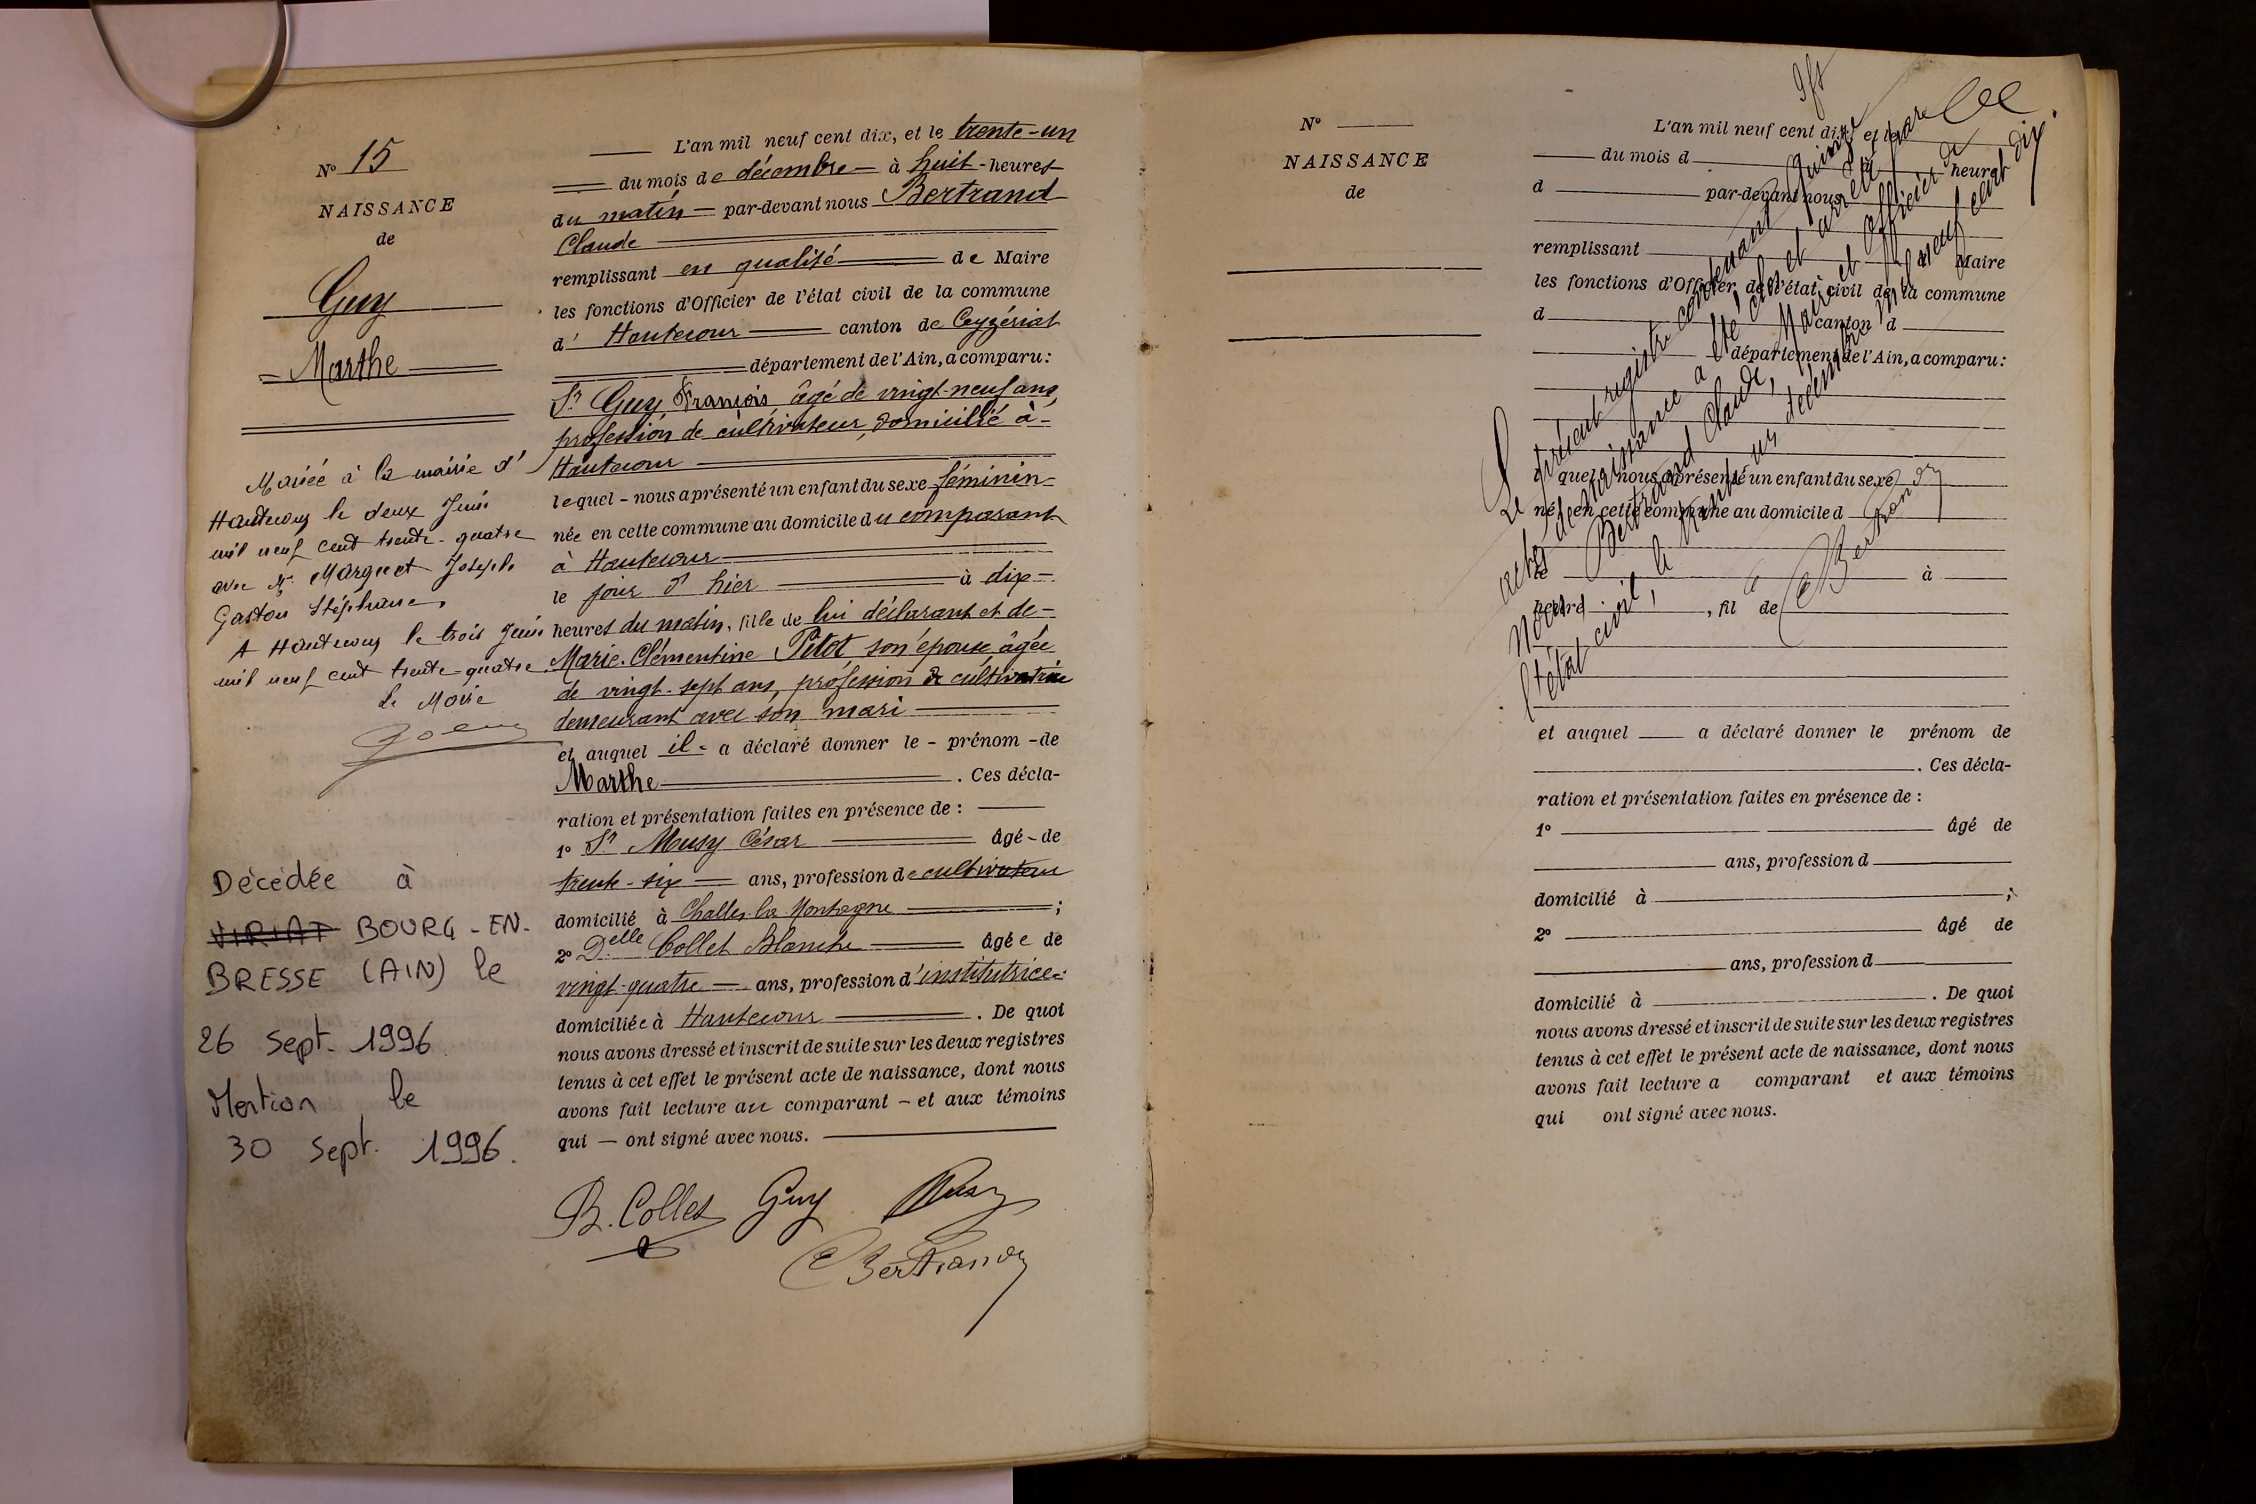 N° 15
NAISSANCE
de
Guy
Marthe
Mariée à la mairie d'
Hautecour le deux Juin
mil neuf cent trente-quatre
avec Mr Marguet Joseph
Gaston Stéphane.
A Hautecour le trois Juin
mil neuf cent trente-quatre
Le Maire
Décédée à
VIRIAT BOURG-EN-
BRESSE (AIN) le
26 Sept. 1996
Mention le
30 Sept. 1996.
L'an mil neuf cent dix, et le trente-un
du mois de décembre à huit heures
du matin par-devant nous Bertrand
Claude
remplissant en qualité de Maire
les fonctions d'Officier de l'état civil de la commune
d' Hautecour canton de Ceyzériat
département de l'Ain, a comparu :
Sr Guy François âgé de vingt-neuf ans,
profession de cultivateur, domicilié à
Hautecour
lequel nous a présenté un enfant du sexe féminin
née en cette commune au domicile du comparant
à Hautecour
le jour d'hier à dix
heures du matin, fille de lui déclarant et de
Marie-Clémentine Pitot son épouse âgée
de vingt-sept ans, profession de cultivatrice
demeurant avec son mari
et auquel il a déclaré donner le prénom de
Marthe . Ces décla-
ration et présentation faites en présence de :
1° Sr Musy César âgé de
trente-six ans, profession de cultivateur
domicilié à Challes-la-Montagne ;
2° Delle Collet Blanche âgée de
vingt-quatre ans, profession d'institutrice
domiciliée à Hautecour . De quoi
nous avons dressé et inscrit de suite sur les deux registres
tenus à cet effet le présent acte de naissance, dont nous
avons fait lecture au comparant et aux témoins
qui ont signé avec nous.
B. Collet Guy Musy
C Bertrand
N°
NAISSANCE
de
L'an mil neuf cent dix, et le
du mois d à heures
d par-devant nous
remplissant de Maire
les fonctions d'Officier de l'état civil de la commune
d canton d
département de l'Ain, a comparu :
quel nous a présenté un enfant du sexe
né en cette commune au domicile d
le à
heure , fil de
et auquel a déclaré donner le prénom de
. Ces décla-
ration et présentation faites en présence de :
1° âgé de
ans, profession d
domicilié à ;
2° âgé de
ans, profession d
domicilié à . De quoi
nous avons dressé et inscrit de suite sur les deux registres
tenus à cet effet le présent acte de naissance, dont nous
avons fait lecture a comparant et aux témoins
qui ont signé avec nous.
Le présent registre contenant quinze
actes de naissance a été clos et arrêté par
Nous, Bertrand Claude, Maire et Officier de
l'état civil, le trente un décembre mil neuf cent dix.
C Bertrand